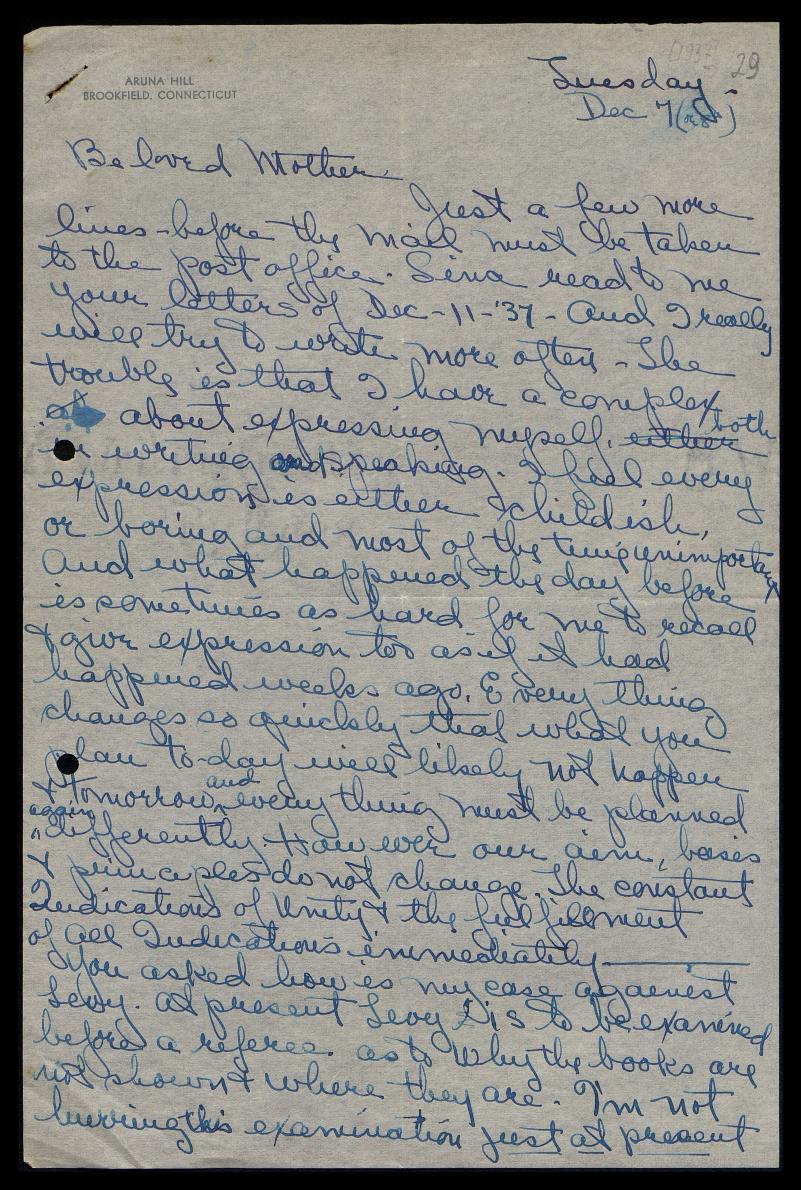 29
ARUNA HILL
BROOKFIELD, CONNECTICUT
Tuesday.
Dec 7
Beloved Mother,
Just a few more
lines - before the mail must be taken
to the post office. Sina read to me
your letters of Dec-11-'37 - And I really
will try to write more often - The
trouble is that I have a complex
about expressing myself, either both
in writing and speaking. I feel every
expression is either childish,
or boring and most of the time unimportant
And what happened the day before
is sometimes as hard for me to recall
& give expression too as if it had
happened weeks ago. Every thing
changes so quickly that what you
plan to-day will likely not happen
& tomorrow and every thing must be planned
again
differently. However our aim, basis
& principles do not change. The constant
Indications of Unity & the fulfillment
of all Indications immediately
You asked how is my case against
Levy. At present Levy is to be examined
before a referee. as to why the books are
not shown & where they are. I'm not
hurring this examination just at present